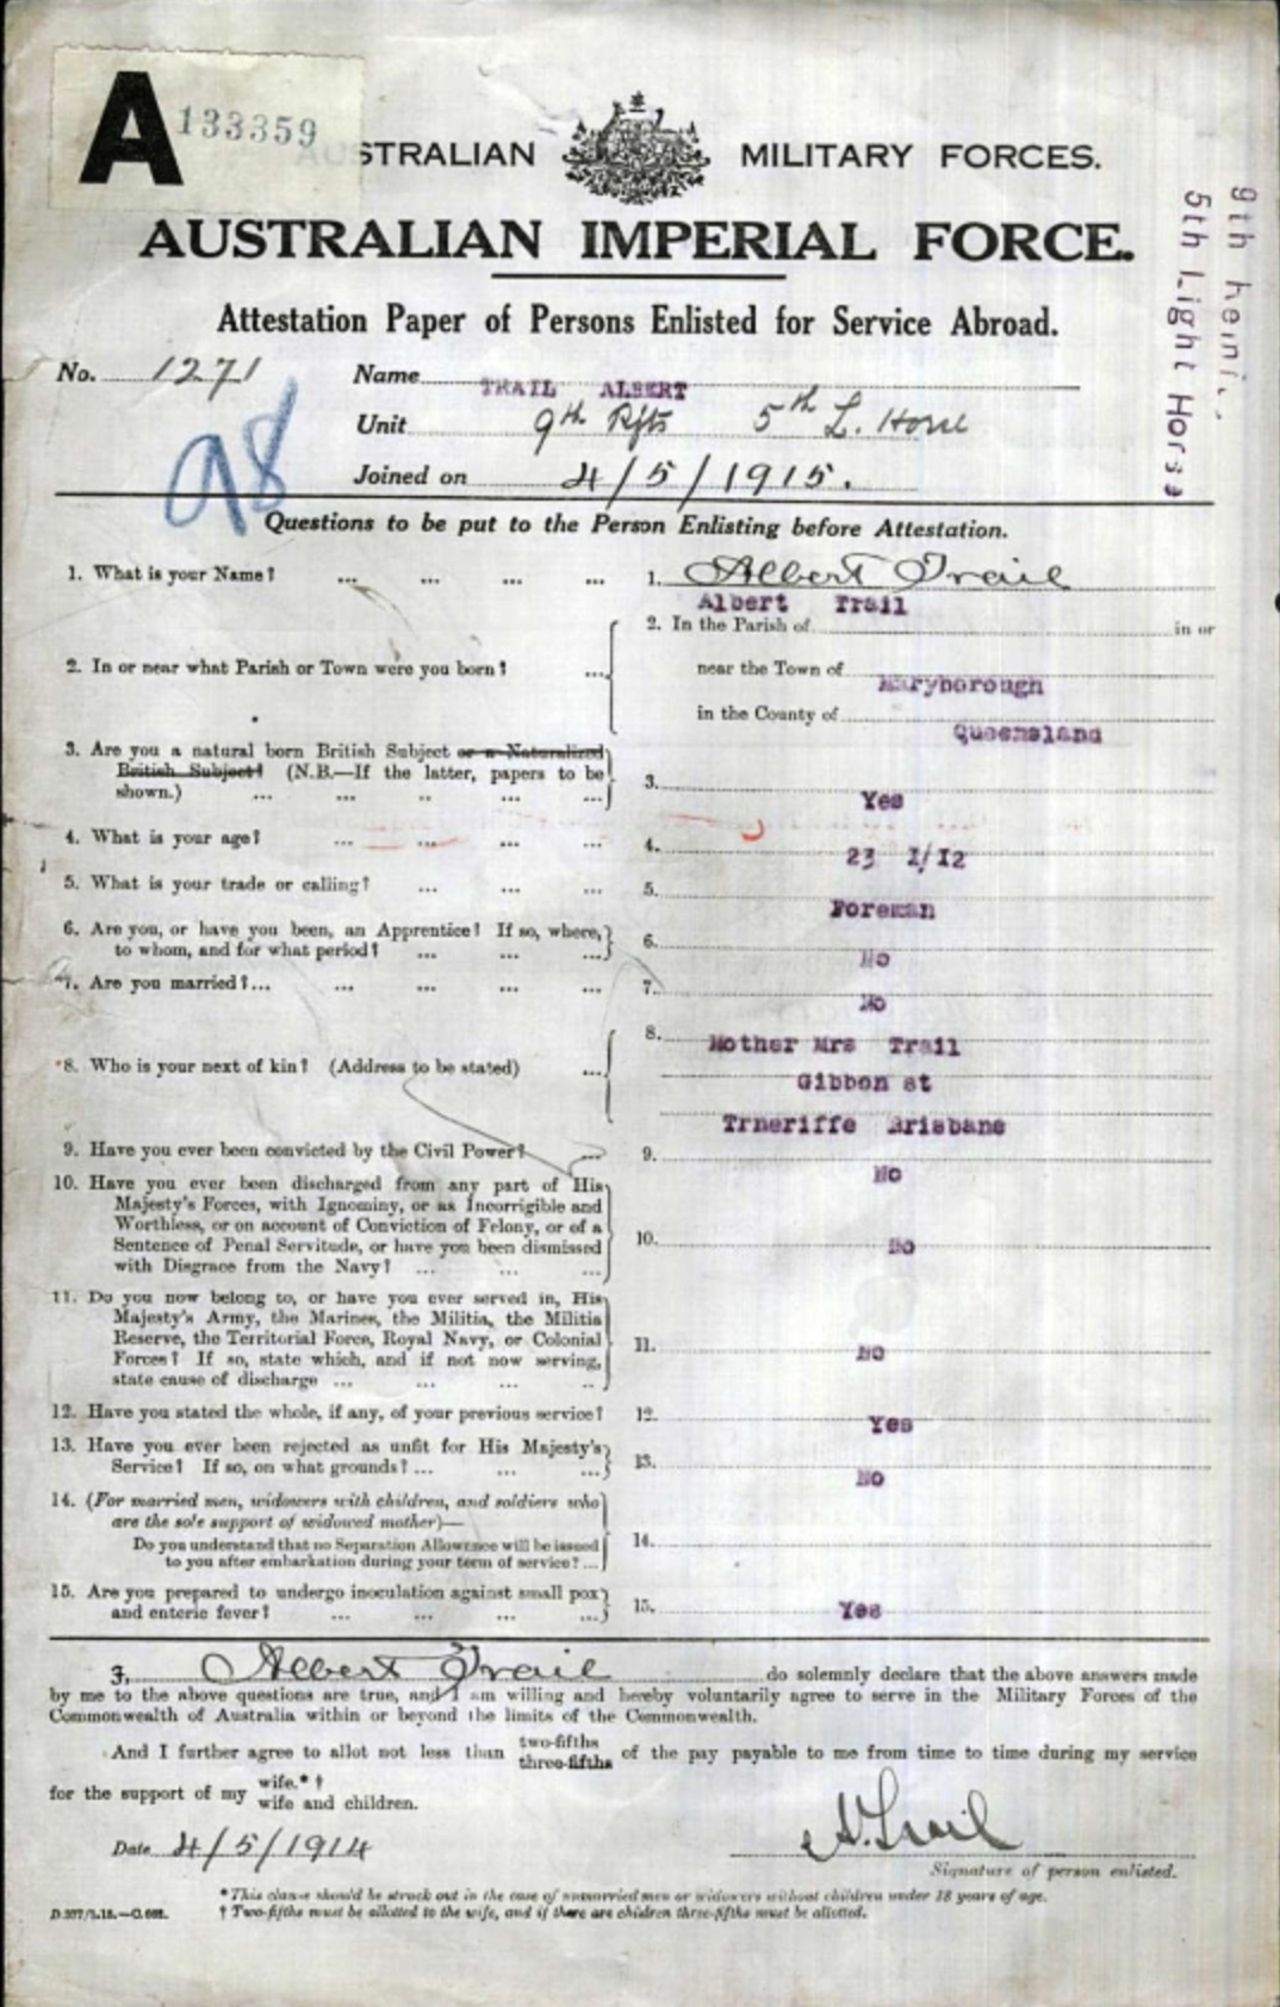 A 133359
AUSTRALIAN MILITARY FORCES.
AUSTRALIAN IMPERIAL FORCE.
9th Reinf.
5th Light Horse
Attestation Paper of Persons Enlisted for Service Abroad.
No. 1271 Name TRAIL ALBERT
Unit 9th Rfts 5th L. Horse
98
Joined on 4/5/1915.
Questions to be put to the Person Enlisting before Attestation.
1. What is your Name? ... ... ... ... 1. Albert Trail
Albert Trail
2. In or near what Parish or Town were you born? ... 2. In the Parish of in or
near the Town of Maryborough
in the County of Queensland
3. Are you a natural born British Subject or a Naturalized
British Subject? (N.B.—If the latter, papers to be
shown.) ... ... .. ... ... 3. Yes
4. What is your age? ... ... ... ... 4. 23 I/I2
5. What is your trade or calling? ... ... ... 5. Foreman
6. Are you, or have you been, an Apprentice? If so, where,
to whom, and for what period? ... ... ... 6. No
7. Are you married?... ... ... ... ... 7. No
*8. Who is your next of kin? (Address to be stated) ... 8. Mother Mrs Trail
Gibbon st
Trneriffe Brisbane
9. Have you ever been convicted by the Civil Power? ... 9. No
10. Have you ever been discharged from any part of His
Majesty's Forces, with Ignominy, or as Incorrigible and
Worthless, or on account of Conviction of Felony, or of a
Sentence of Penal Servitude, or have you been dismissed
with Disgrace from the Navy? ... ... ... 10. No
11. Do you now belong to, or have you ever served in, His
Majesty's Army, the Marines, the Militia, the Militia
Reserve, the Territorial Force, Royal Navy, or Colonial
Forces? If so, state which, and if not now serving,
state cause of discharge ... ... ... .. 11. No
12. Have you stated the whole, if any, of your previous service? 12. Yes
13. Have you ever been rejected as unfit for His Majesty's
Service? If so, on what grounds? ... ... ... 13. No
14. (For married men, widowers with children, and soldiers who
are the sole support of widowed mother)—
Do you understand that no Separation Allowance will be issued
to you after embarkation during your term of service? ... 14.
15. Are you prepared to undergo inoculation against small pox
and enteric fever? ... ... ... ... 15. Yes
I, Albert Trail do solemnly declare that the above answers made
by me to the above questions are true, and I am willing and hereby voluntarily agree to serve in the Military Forces of the
Commonwealth of Australia within or beyond the limits of the Commonwealth.
And I further agree to allot not less than two-fifths three-fifths of the pay payable to me from time to time during my service
for the support of my wife.*† wife and children.
Date 4/5/1914 A. Trail
Signature of person enlisted.
*This clause should be struck out in the case of unmarried men or widowers without children under 18 years of age.
D.377/2.15.—C.662. † Two-fifths must be allotted to the wife, and if there are children three-fifths must be allotted.